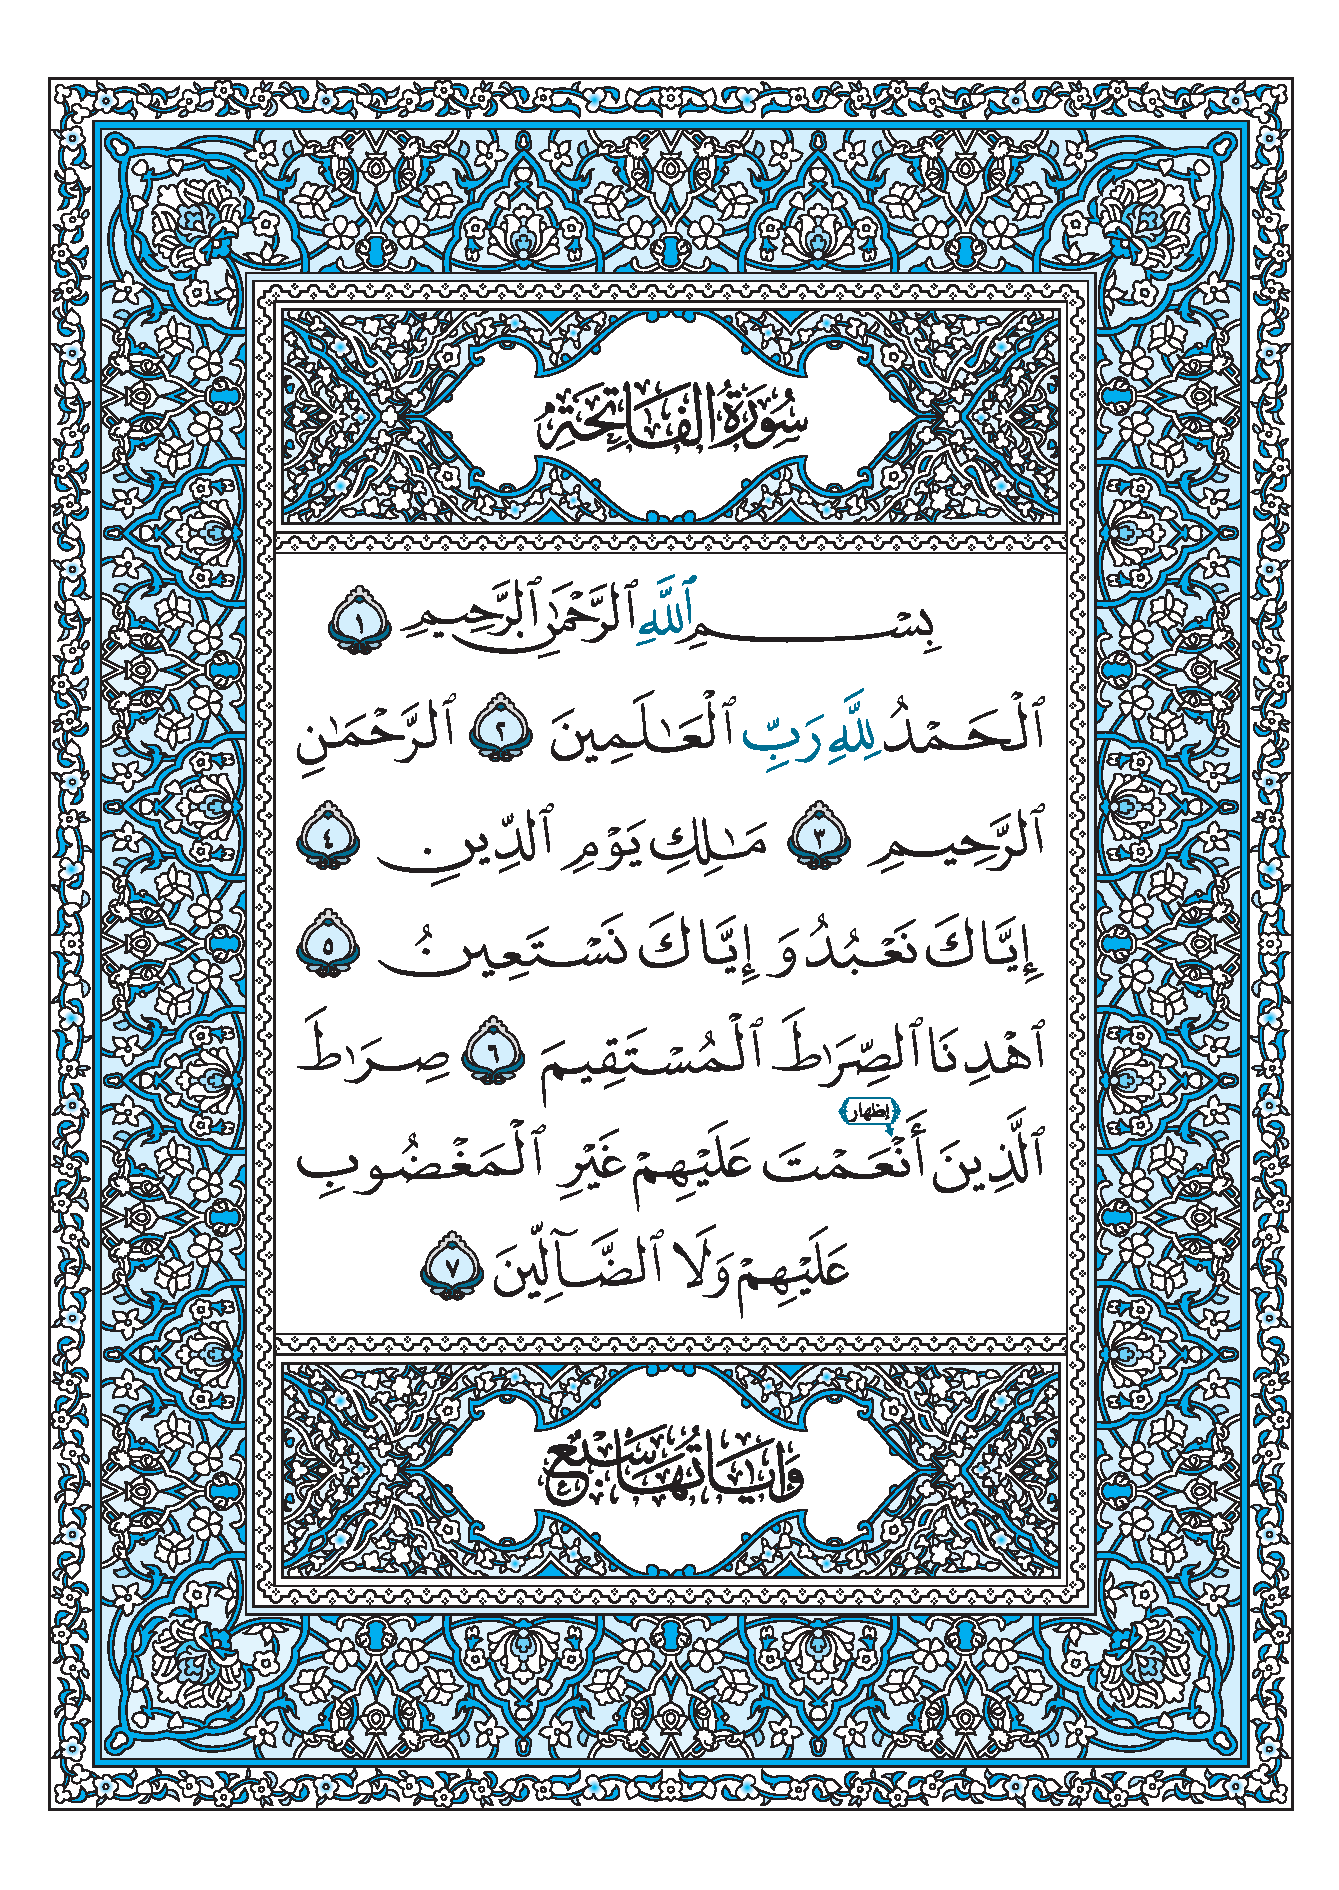 سُورَةُ الْفَاتِحَةِ
بِسْمِ ٱللَّهِ ٱلرَّحْمَٰنِ ٱلرَّحِيمِ ١
ٱلْحَمْدُ لِلَّهِ رَبِّ ٱلْعَٰلَمِينَ ٢ ٱلرَّحْمَٰنِ
ٱلرَّحِيمِ ٣ مَٰلِكِ يَوْمِ ٱلدِّينِ ٤
إِيَّاكَ نَعْبُدُ وَ إِيَّاكَ نَسْتَعِينُ ٥
ٱهْدِنَا ٱلصِّرَٰطَ ٱلْمُسْتَقِيمَ ٦ صِرَٰطَ
إظهار
ٱلَّذِينَ أَنْعَمْتَ عَلَيْهِمْ غَيْرِ ٱلْمَغْضُوبِ
عَلَيْهِمْ وَلَا ٱلضَّآلِّينَ ٧
وَاٰيَاتُهَا سَبْعٌ